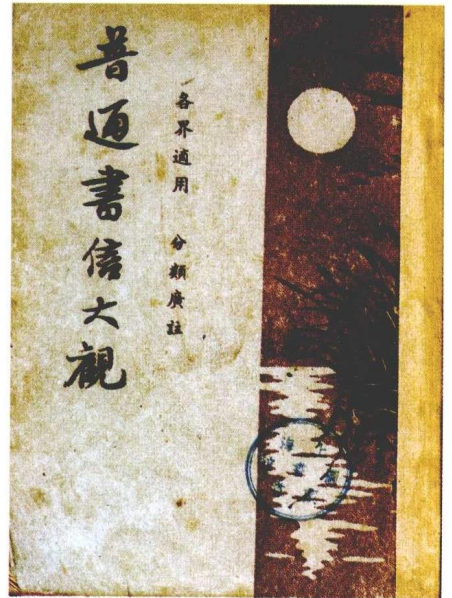 普通書信大觀
各界適用　分類廣註